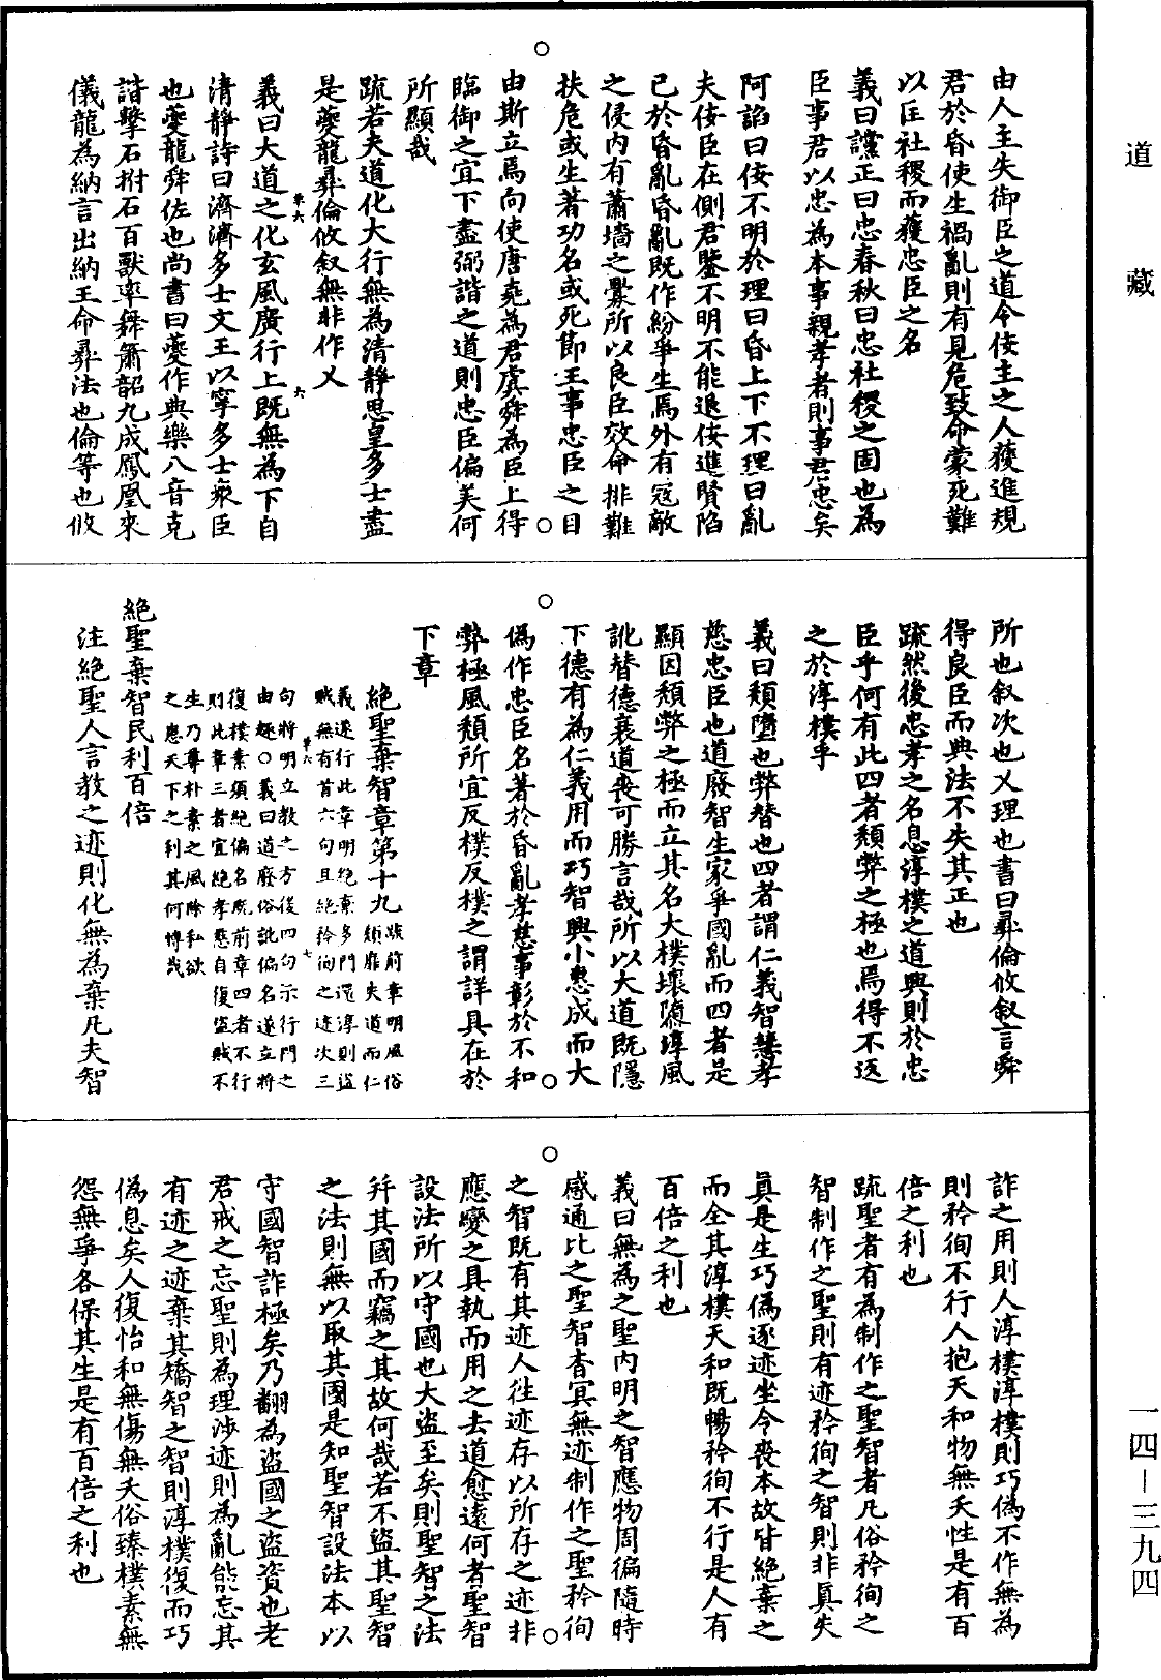 道藏
由人主失御臣之道令佞主之人獲進規
君於昏使生禍亂則有見危致命蒙死難
以匡社稷而獲忠臣之名
義曰讜正曰忠春秋曰忠社稷之固也為
臣事君以忠為本事親孝者則事君忠矣
阿諂曰佞不明於理曰昏上下不理曰亂
夫佞臣在側君鑒不明不能退佞進賢陷
已於昏亂昏亂既作紛爭生焉外有寇敵
之侵內有蕭墻之釁所以良臣效命排難
扶危或生著功名或死節王事忠臣之目
由斯立焉向使唐堯為君虞舜為臣上得
臨御之宜下盡弼諧之道則忠臣偏美何
所顯哉
疏若夫道化大行無為清靜思皇多士盡
是夔龍彝倫攸叙無非作乂
義曰大道之化玄風廣行上既無為下自
清靜詩曰濟濟多士文王以寧多士衆臣
也夔龍舜佐也尚書曰夔作典樂八音克
諧擊石拊石百獸率舞簫韶九成鳳凰來
儀龍為納言出納王命彝法也倫等也攸
所也叙次也乂理也書曰彝倫攸叙言舜
得良臣而典法不失其正也
疏然後忠孝之名息淳樸之道興則於忠
臣乎何有此四者頹弊之極也焉得不返
之於淳樸乎
義曰頹墮也弊替也四者謂仁義智慧孝
慈忠臣也道廢智生家爭國亂而四者是
顯因頹弊之極而立其名大樸壞隳淳風
訛替德衰道喪可勝言哉所以大道既隱
下德有為仁義用而巧智興小惠成而大
偽作忠臣名著於昏亂孝慈事彰於不和
弊極風頹所宜反樸反樸之謂詳具在於
下章
絕聖棄智章第十九
疏前章明風俗
頹靡失道而仁
義遂行此章明絕棄多門還淳則盜
賊無有首六句且絕矜徇之違次三
句將明立教之方後四句示行門之
由趣〇義曰道廢俗訛偏名遂立將
復樸素須絕偏名既前章四者不行
則此章三者宜絕孝慈自復盜賊不
生乃尊朴素之風除私欲
之應天下之利其何博哉
絕聖棄智民利百倍
注絕聖人言教之迹則化無為棄凡夫智
詐之用則人淳樸淳樸則巧偽不作無為
則矜徇不行人抱天和物無夭性是有百
倍之利也
疏聖者有為制作之聖智者凡俗矜徇之
智制作之聖則有迹矜徇之智則非真失
真是生巧偽逐迹坐令喪本故皆絕棄之
而全其淳樸天和既暢矜徇不行是人有
百倍之利也
義曰無為之聖內明之智應物周徧隨時
感通比之聖智杳冥無迹制作之聖矜徇
之智既有其迹人徃迹存以所存之迹非
應變之具執而用之去道愈遠何者聖智
設法所以守國也大盜至矣則聖智之法
并其國而竊之其故何哉若不盜其聖智
之法則無以取其國是知聖智設法本以
守國智詐極矣乃翻為盜國之盜資也老
君戒之忘聖則為理涉迹則為亂能忘其
有迹之迹棄其矯智之智則淳樸復而巧
偽息矣人復怡和無傷無夭俗臻樸素無
怨無爭各保其生是有百倍之利也
一四—三九四